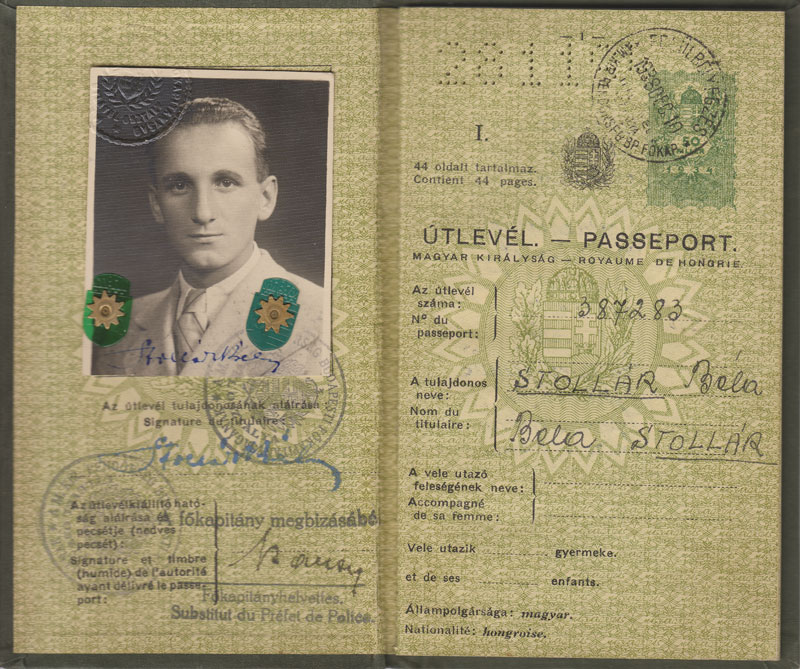 Stollár Béla
Az útlevél tulajdonosának aláírása
Signature du titulaire:
Az útlevélkiállító ható-
ság aláírása és
pecsétje (nedves
pecsét):
A főkapitány megbizásából
Signature et timbre
(humide) de l'autorité
ayant délivré le passe-
port:
Főkapitányhelyettes.
Substitut du Préfet de Police.
I.
44 oldalt tartalmaz.
Contient 44 pages.
50
1934
ÚTLEVÉL. — PASSEPORT.
MAGYAR KIRÁLYSÁG — ROYAUME DE HONGRIE
Az útlevél
száma:
Nº du
passeport:
387283
A tulajdonos
neve:
STOLLÁR Béla
Nom du
titulaire:
Bela STOLLÁR
A vele utazó
feleségének neve:
Accompagné
de sa femme:
Vele utazik gyermeke.
et de ses enfants.
Állampolgársága: magyar.
Nationalité: hongroise.